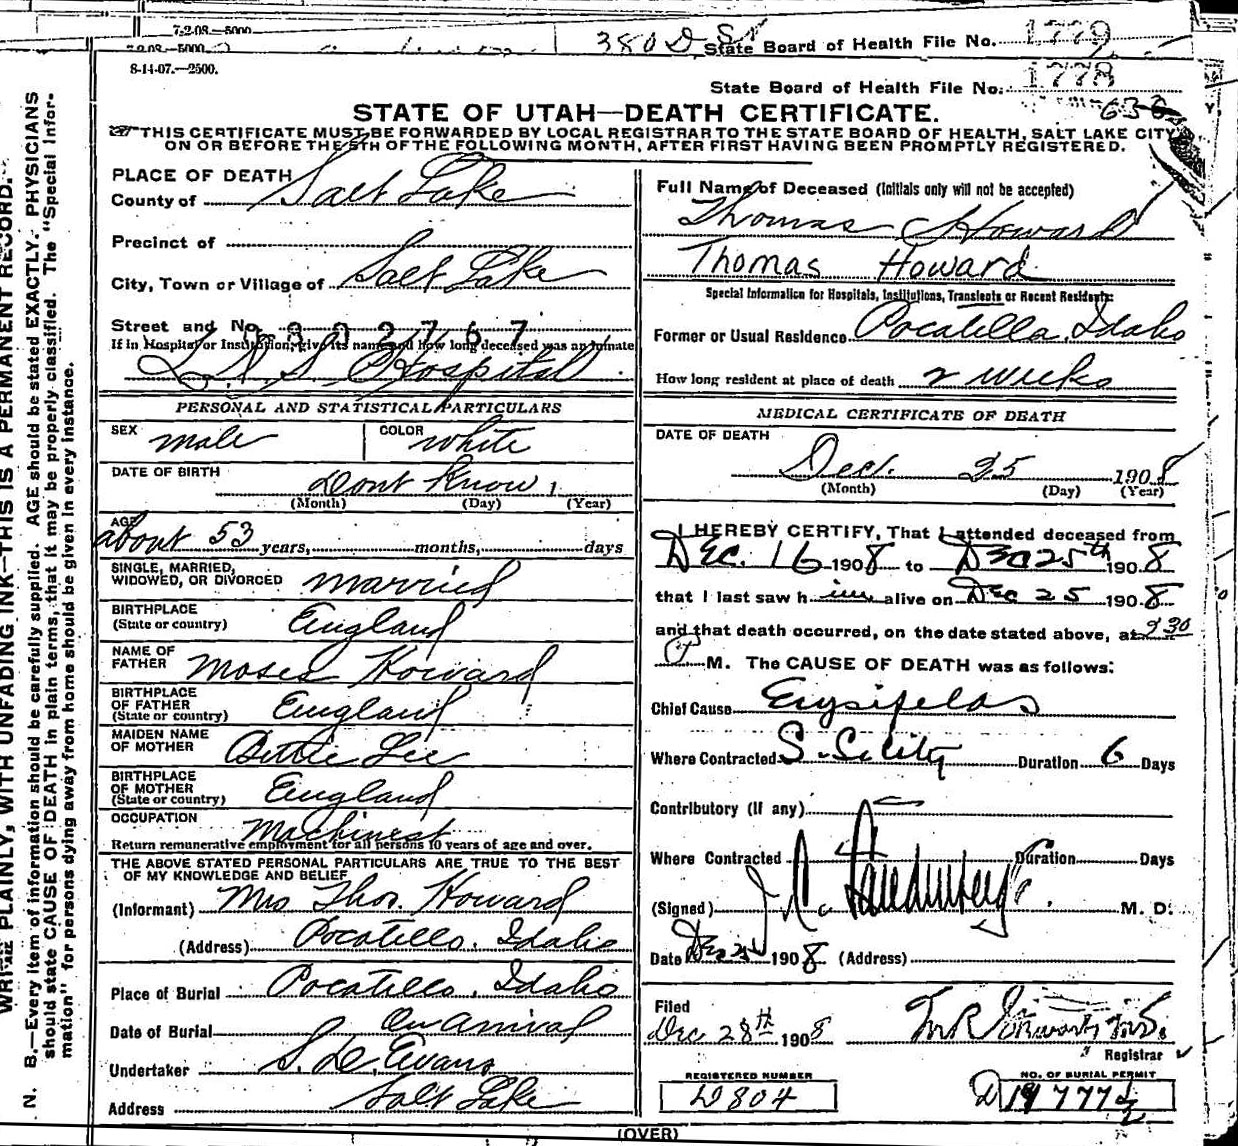 7-2-08.—5000.
7-2-08.—5000.
380 D St
State Board of Health File No. 1779
8-14-07.—2500.
State Board of Health File No. 1778
STATE OF UTAH—DEATH CERTIFICATE.
THIS CERTIFICATE MUST BE FORWARDED BY LOCAL REGISTRAR TO THE STATE BOARD OF HEALTH, SALT LAKE CITY
ON OR BEFORE THE 5TH OF THE FOLLOWING MONTH, AFTER FIRST HAVING BEEN PROMPTLY REGISTERED.
N. B.—Every item of information should be carefully supplied. AGE should be stated EXACTLY. PHYSICIANS
should state CAUSE OF DEATH in plain terms, that it may be properly classified. The "Special Infor-
mation" for persons dying away from home should be given in every instance.
PLAINLY, WITH UNFADING INK—THIS IS A PERMANENT RECORD.
PLACE OF DEATH
County of Salt Lake
Precinct of
City, Town or Village of Salt Lake
Street and No.
302767
If in Hospital or Institution, give its name and how long deceased was an inmate
L D S Hospital
PERSONAL AND STATISTICAL PARTICULARS
SEX male COLOR white
DATE OF BIRTH
Dont know
(Month) (Day) (Year)
AGE
about 53 years, months, days
SINGLE, MARRIED,
WIDOWED, OR DIVORCED married
BIRTHPLACE
(State or country) England
NAME OF
FATHER Moses Howard
BIRTHPLACE
OF FATHER
(State or country) England
MAIDEN NAME
OF MOTHER Bettie Lee
BIRTHPLACE
OF MOTHER
(State or country) England
OCCUPATION Machinest
Return remunerative employment for all persons 10 years of age and over.
THE ABOVE STATED PERSONAL PARTICULARS ARE TRUE TO THE BEST
OF MY KNOWLEDGE AND BELIEF
(Informant) Mrs Thos. Howard
(Address) Pocatello, Idaho
Place of Burial Pocatello, Idaho
Date of Burial On Arrival
Undertaker S. D. Evans
Address Salt Lake
Full Name of Deceased (Initials only will not be accepted)
Thomas Howard
Thomas Howard
Special Information for Hospitals, Institutions, Transients or Recent Residents:
Former or Usual Residence Pocatella, Idaho
How long resident at place of death 2 weeks
MEDICAL CERTIFICATE OF DEATH
DATE OF DEATH
Dec. 25 1908
(Month) (Day) (Year)
I HEREBY CERTIFY, That I attended deceased from
Dec. 16 1908 to Dec 25th 1908
that I last saw him alive on Dec 25 1908
and that death occurred, on the date stated above, at 9 30
P M. The CAUSE OF DEATH was as follows:
Chief Cause Erysipelas
Where Contracted S. L. City Duration 6 Days
Contributory (if any)
Where Contracted Duration Days
(Signed) M. D.
Date Dec 25 1908 (Address)
Filed
Dec 28th 1908
Registrar
REGISTERED NUMBER
D804
NO. OF BURIAL PERMIT
(OVER)